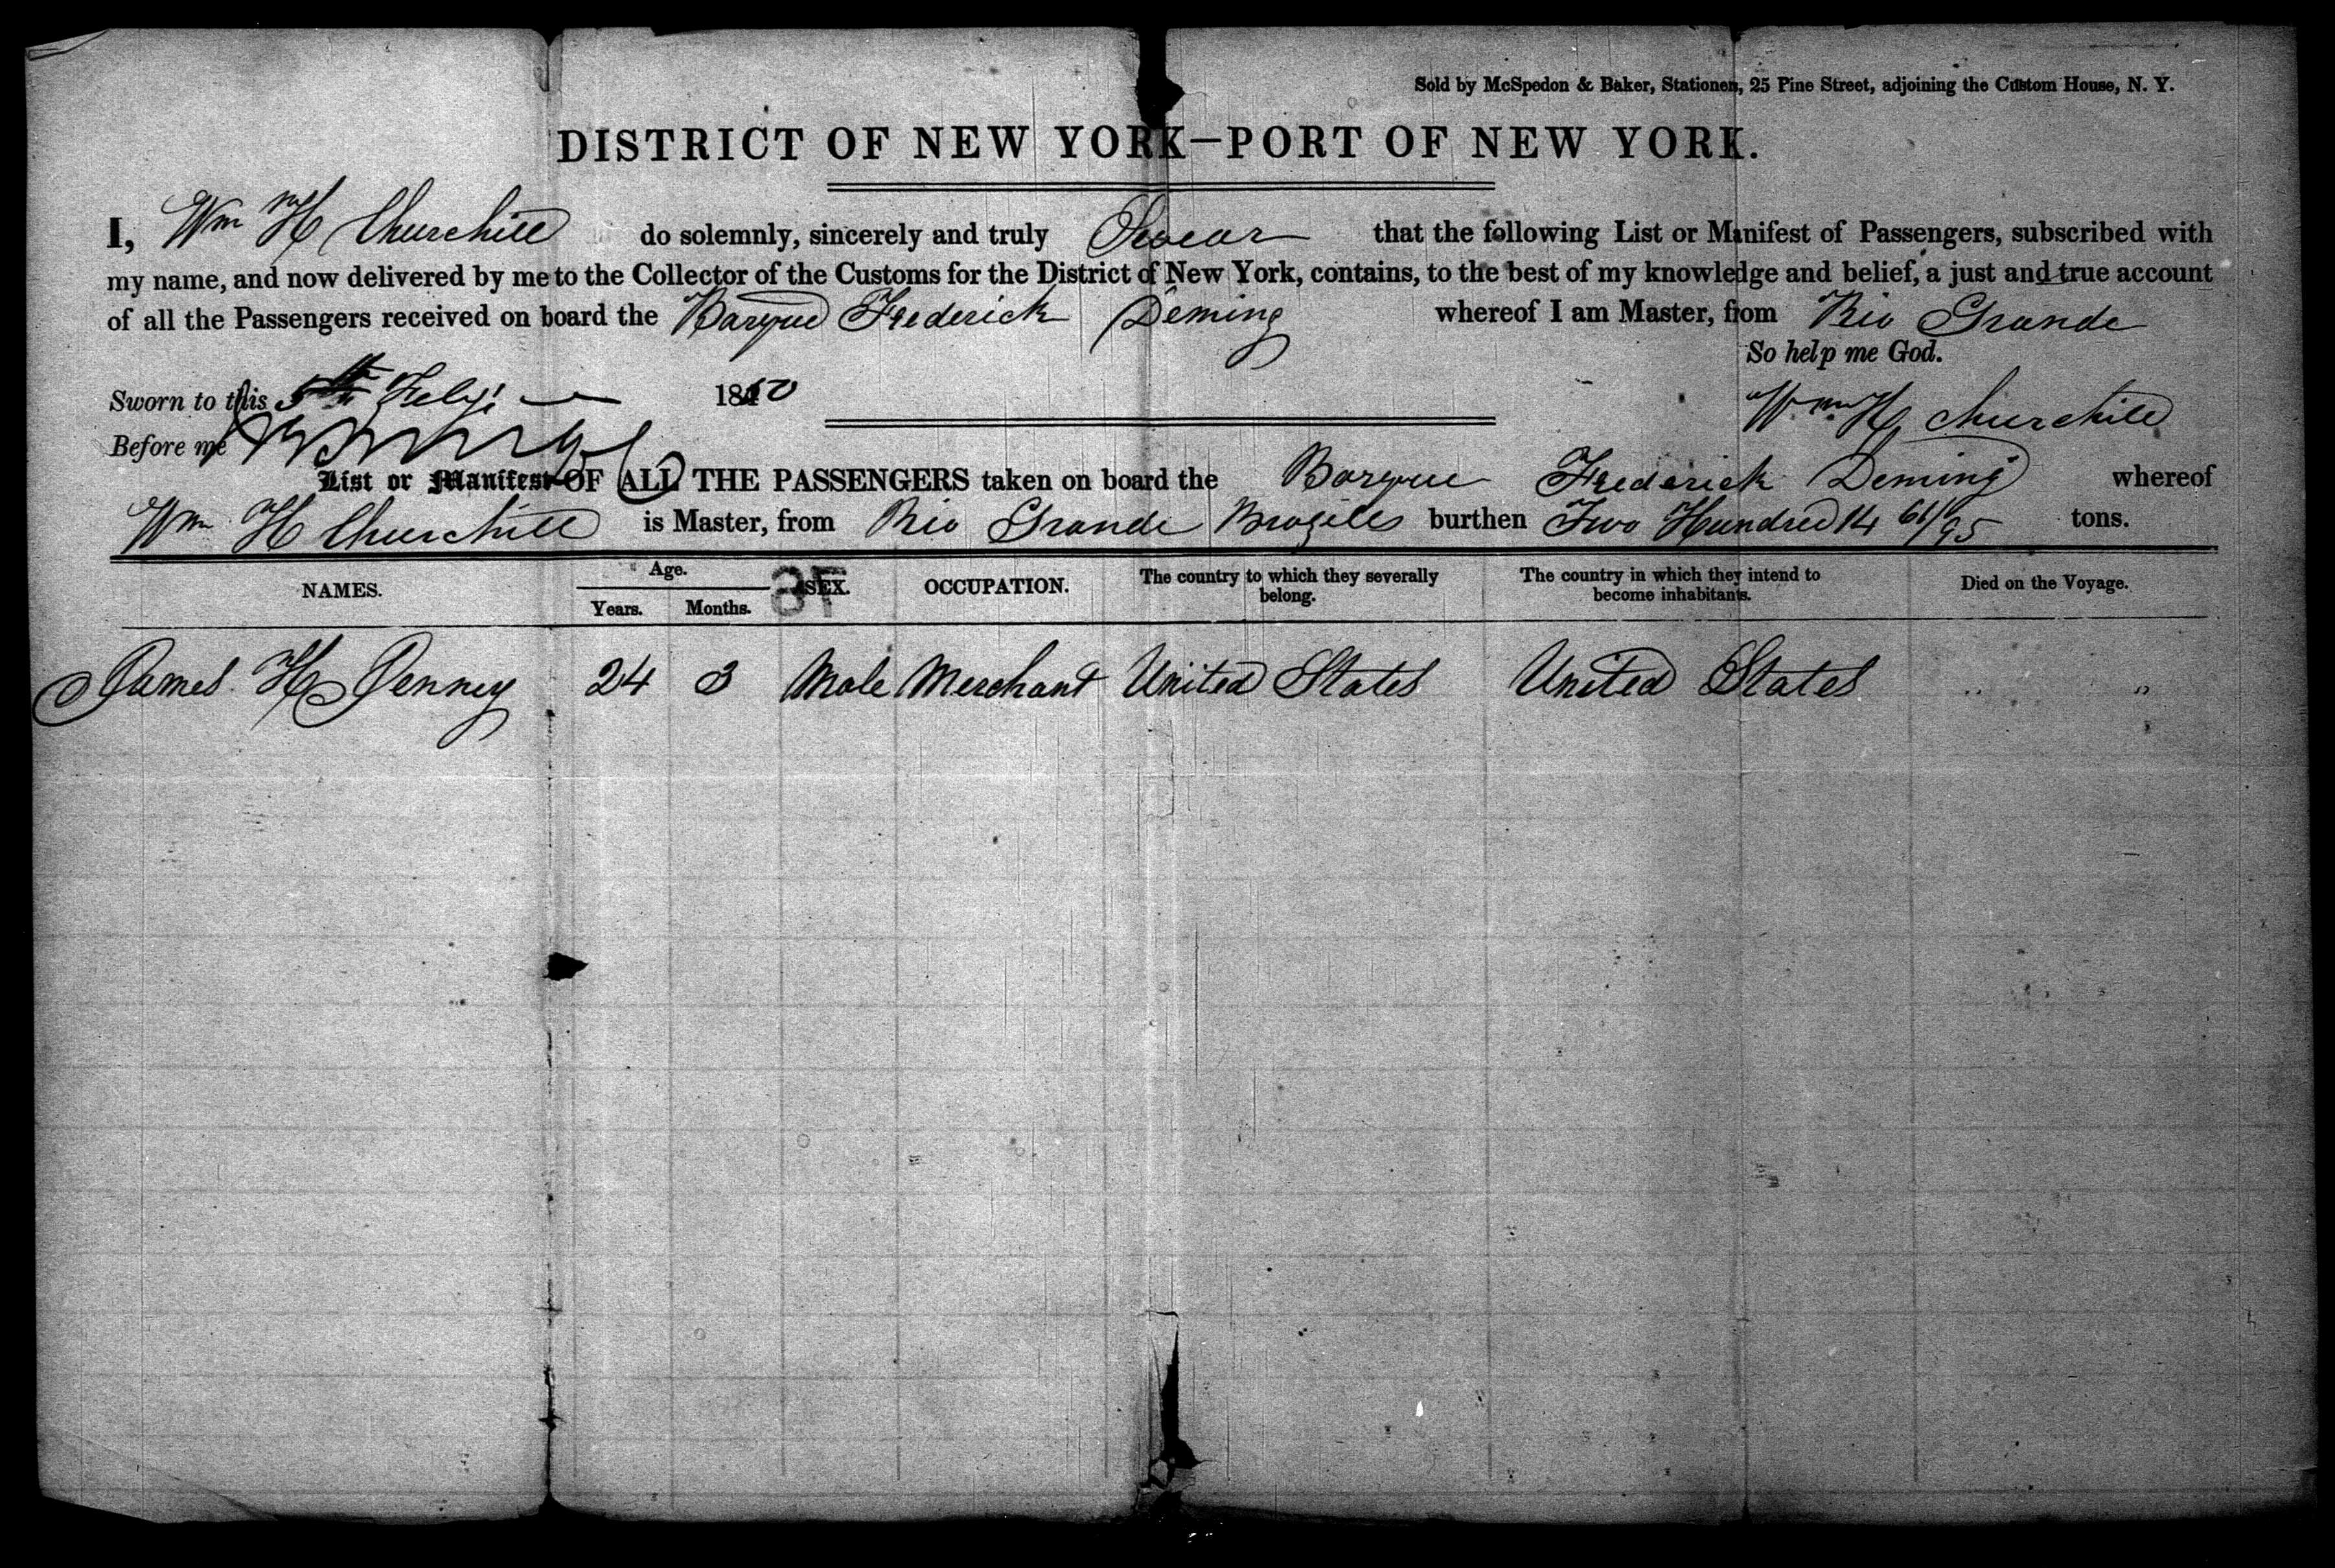 Sold by McSpedon & Baker, Stationers, 25 Pine Street, adjoining the Custom House, N. Y.
DISTRICT OF NEW YORK—PORT OF NEW YORK.
I, Wm H Churchill do solemnly, sincerely and truly Swear that the following List or Manifest of Passengers, subscribed with
my name, and now delivered by me to the Collector of the Customs for the District of New York, contains, to the best of my knowledge and belief, a just and true account
of all the Passengers received on board the Barque Frederick Deming whereof I am Master, from Rio Grande
So help me God.
Sworn to this 5th Feby 1850
Wm H Churchill
Before me
List or Manifest OF ALL THE PASSENGERS taken on board the Barque Frederick Deming whereof
Wm H Churchill is Master, from Rio Grande Brazills burthen Two Hundred 14 61/95 tons.
NAMES. Age. Years. Months. SEX. OCCUPATION. The country to which they severally belong. The country in which they intend to become inhabitants. Died on the Voyage.
James H Penney 24 3 Male Merchant United States United States " "